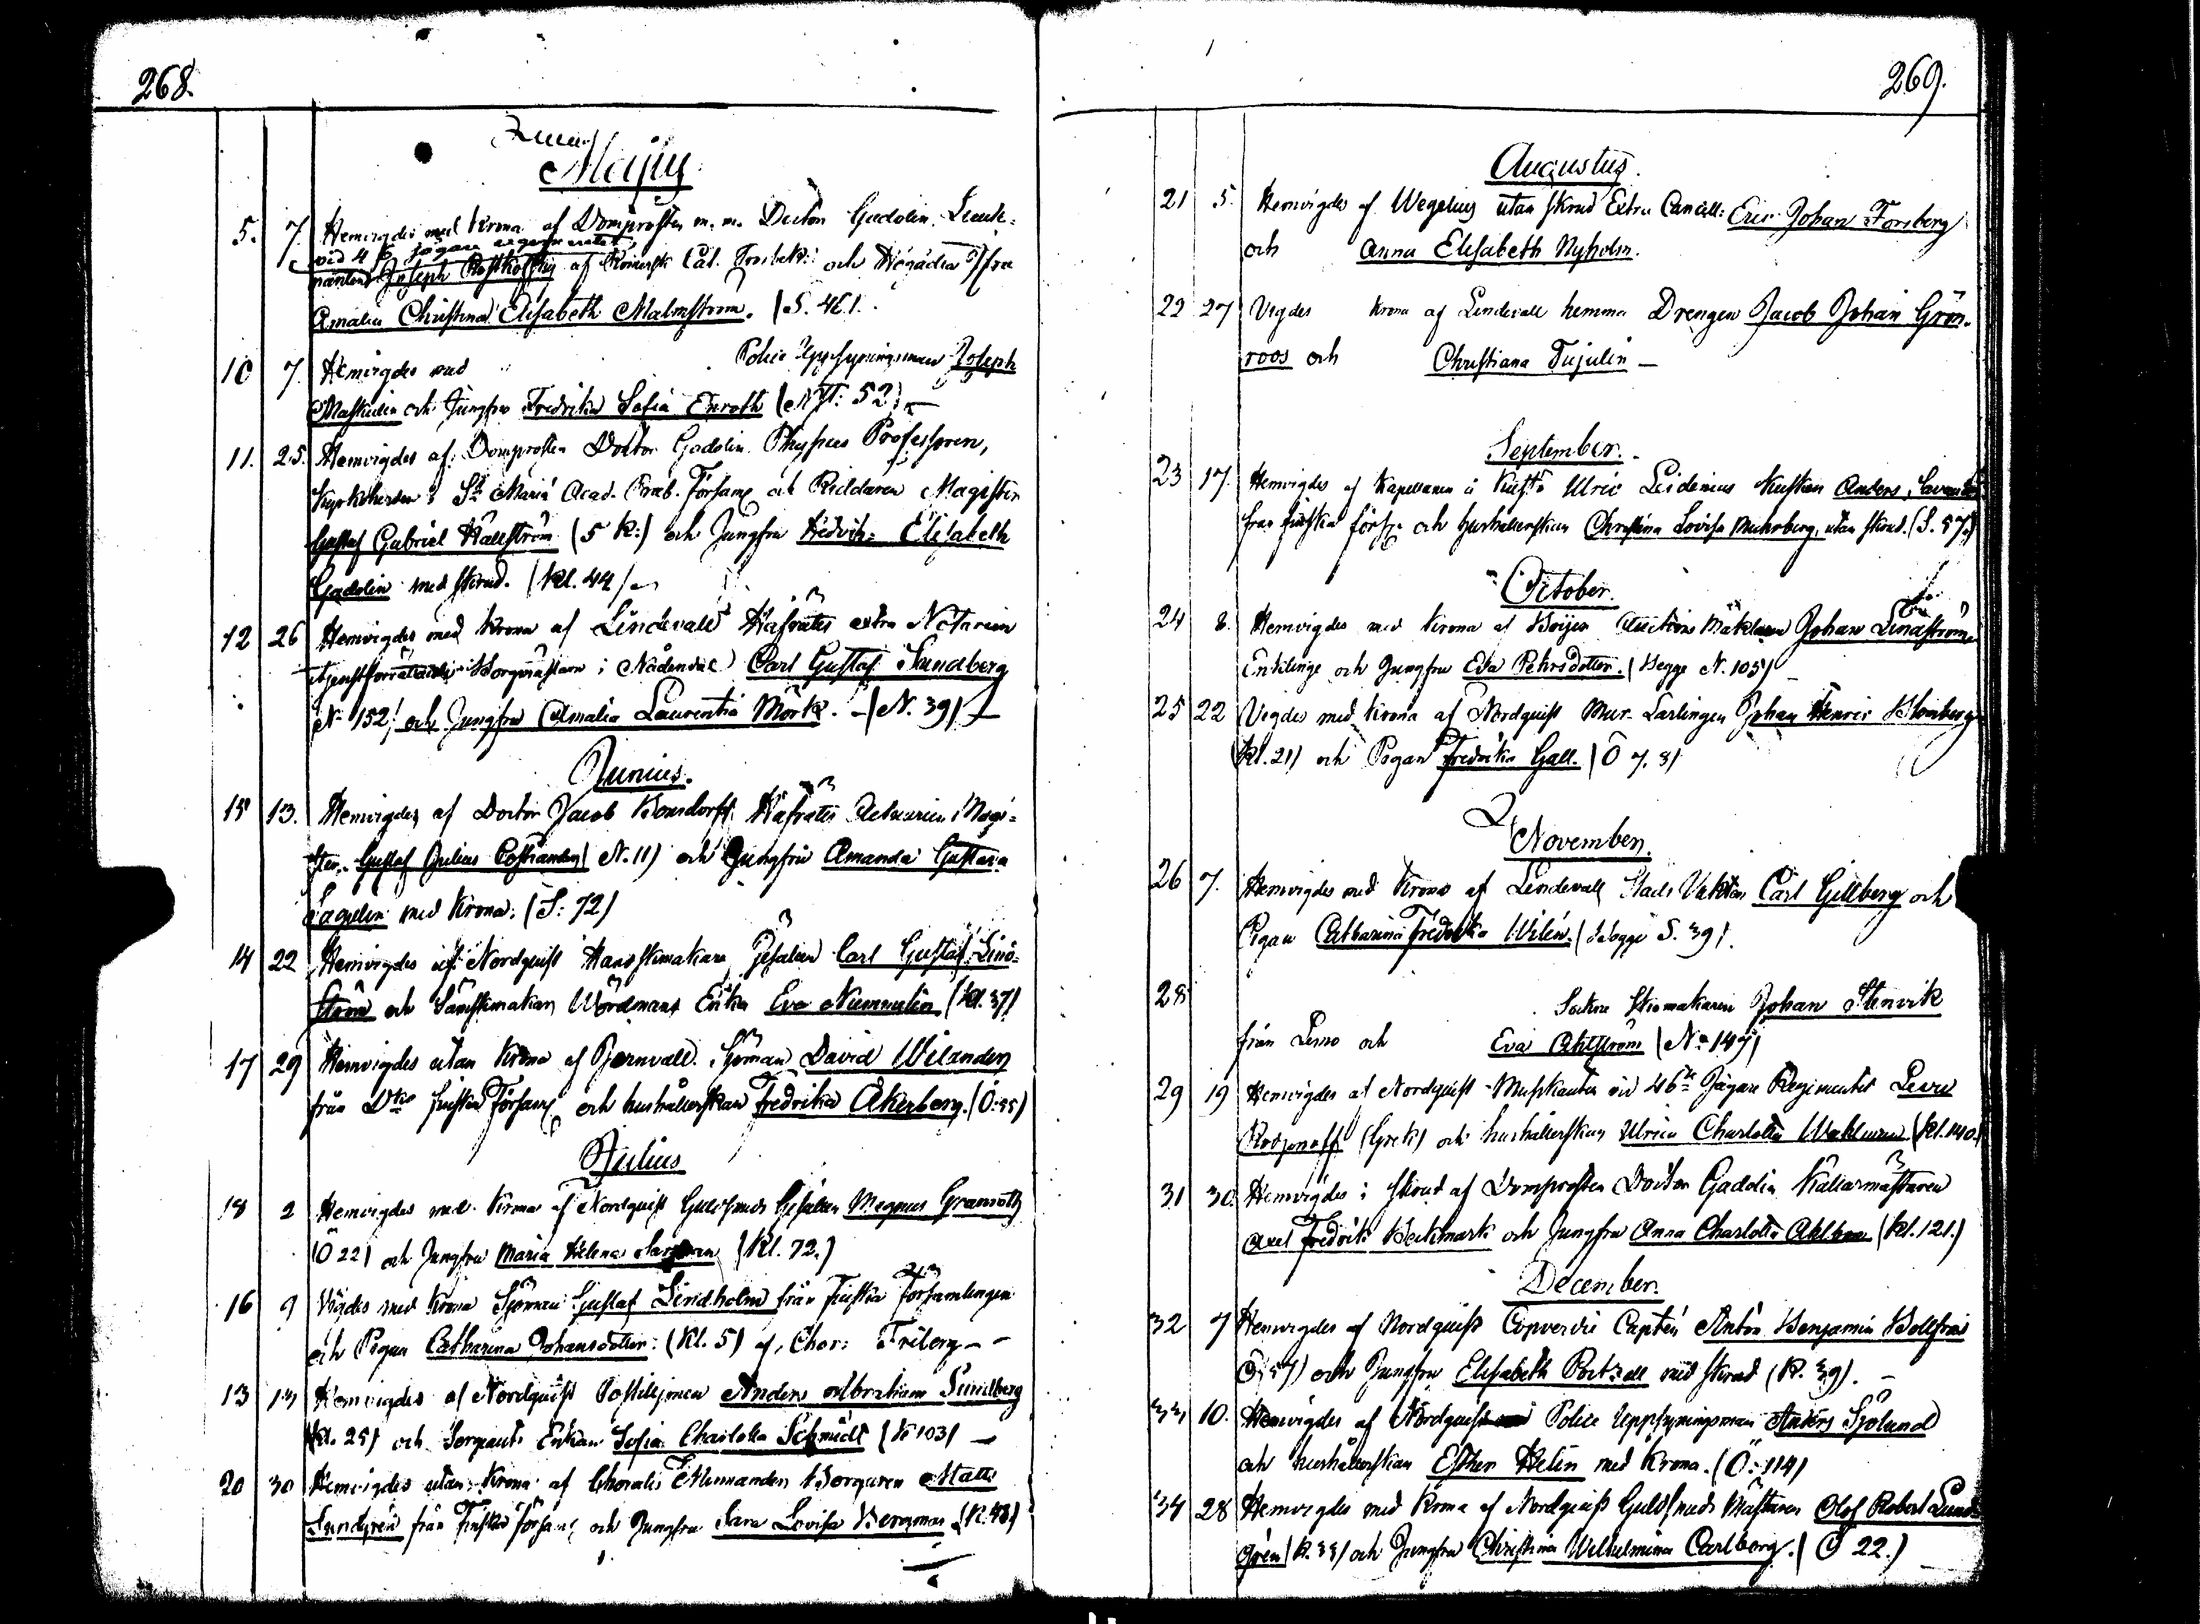 268.
Majus
5. 7. Hemvigdes med Krona af Domprosten m. m. Doctor Gadolin Lieut-
vid 4 jägare regementet
nanten Joseph af Romersk Cat. och Högädla Jfru
Amalia Christina Elisabeth Malmström. (S. 46).
10 7. Hemvigdes med Police Uppsyningsman Joseph
och Jungfru Fredrika Sofia Enroth (N 52)
11. 25. Hemvigdes af Domprosten Doctor Gadolin Physices Professoren,
Kyrkoherden i S:t Mariæ Acad. Præb. Förs. och Riddaren Magister
Gustaf Gabriel Hällström (5 K:) och Jungfru Hedvig Elisabeth
Gadolin med skrud. (Kl. 44)
12 26 Hemvigdes med Krona af Lindevall Hofrätts extra Notarien
Borgmästaren i Nådendal Carl Gustaf Sundberg
N. 152 och Jungfru Amalia Laurentia Mörk. (N. 39)
Junius.
15 13. Hemvigdes af Doctor Jacob Bonsdorff Hofrätts Actuarien Magi-
ster Gustaf Julius (N. 11) och Jungfru Amanda Gustava
Sagulin med Krona. (S: 72)
14 22 Hemvigdes af Nordquist Handskmakare Gesällen Carl Gustaf Lind-
ström och Wördmans Enka Eva Nummelin (Kl. 37)
17 29 Hemvigdes utan Krona af Bjornvall Sjöman David Wilander
från D:to finska Förs. och hushållerskan Fredrika Åkerberg. (Ö. 55)
Julius
18 2 Hemvigdes med Krona af Nordquist Guldsmeds Gesällen Magnus Granroth
(Ö 22) och Jungfru Maria Helena (Kl. 72.)
16 9 Vigdes med Krona Sjöman Gustaf Lindholm från Finska Församlingen
och Pigan Catharina Johansdotter (Kl. 5) af Chor: Friberg
13 14 Hemvigdes af Nordquist Postiljonen Anders Abraham Sundberg
Kl. 25) och Sergeants Enkan Sofia Charlotta Schmidt (K 103)
20 30 Hemvigdes utan Krona af Choralis Borgaren Matts
Sundgrén från Finska förs. och Jungfru Sara Lovisa Bergman (K. 48)
269.
Augustus.
21 5. Hemvigdes af Wegelius utan skrud Extra Cancell: Eric Johan Forsberg
och Anna Elisabeth Nyholm.
22 27 Vigdes Krona af Lindevall hemma Drengen Jacob Johan Grön-
roos och Christiana Tujulin
September.
23 17. Hemvigdes af Kapellanen i Ulric Leidenius Kusken Anders
från finska förs. och hushållerskan Christina Lovisa Muhrberg, utan skrud. (S. 57.)
October.
24 8. Hemvigdes med Krona af Auctions Mäklaren Johan Lindström
Enkling och Jungfru Eva Pehrsdotter. (Begge N. 105)
25 22 Vigdes med Krona af Nordquist Mur-Lärlingen Johan Henric Blomberg
(Kl. 21) och Pigan Fredrika Gall. (Ö 7. 8)
November.
26 7. Hemvigdes med Krona af Lindevall Stads Vaktm Carl Gillberg och
Pigan Catharina Fredrika Wilén. (S. 39).
28 Skomakaren Johan Stenvik
från Lemo och Eva Ahlström (N:o 147)
29 19 Hemvigdes af Nordquist Musikanten vid 46:te Jägare Regimentet
(Grek) och hushållerskan Ulrica Charlotta (Kl. 140.)
31 30. Hemvigdes i skrud af Domprosten Doctor Gadolin Källarmästaren
Axel Fredrik Beckmark och Jungfru Anna Charlotta (Kl. 121.)
December.
32 7 Hemvigdes af Nordquist Coopverdie Captén Anton Benjamin
(Ö 57) och Jungfru Elisabeth med skrud (K. 39).
33 10. Hemvigdes af Nordquist Police Uppsyningsman Anders Sjölund
och hushållerskan Esther Helin med Krona. (Ö. 114)
34 28 Hemvigdes med Krona af Nordquist Guldsmeds Mästaren Olof Robert Lund-
grén (K. 33) och Jungfru Christina Wilhelmina Carlborg. (Ö 22.)